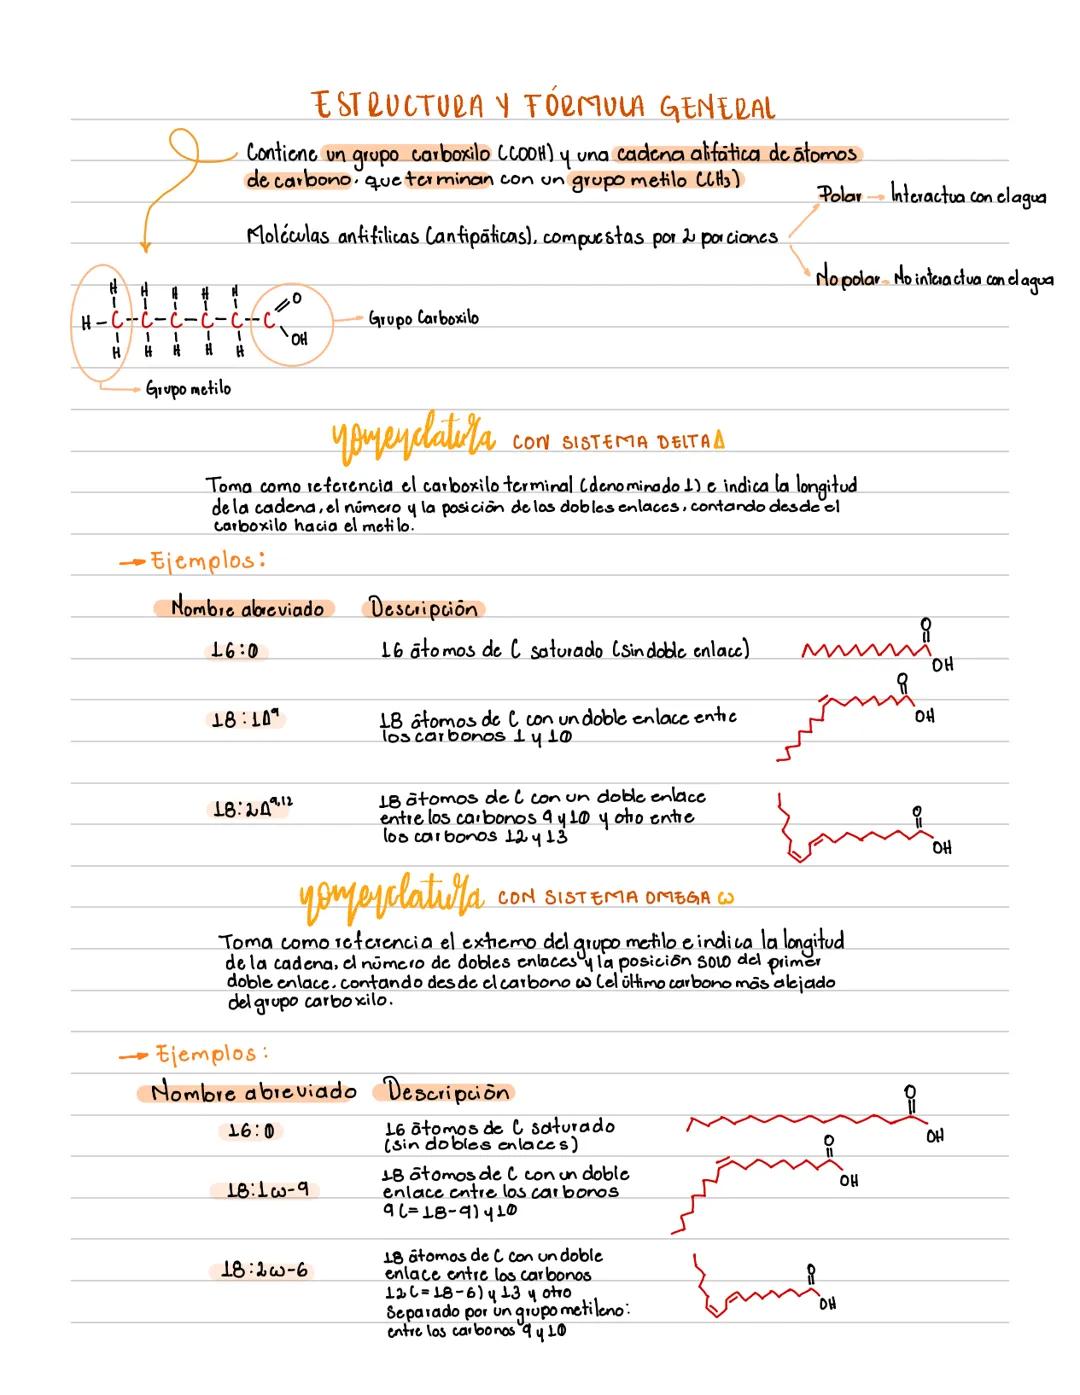 ESTRUCTURA Y FÓRMULA GENERAL
Contiene un grupo carboxilo (COOH) y una cadena alifática de átomos
de carbono, que terminan con un grupo metilo (CH₃)
Polar → Interactua con el agua
Moléculas anfifilicas (antipáticas), compuestas por 2 porciones
No polar → No interactua con el agua
H H H H H
H-C-C-C-C-C-C
O
OH
H H H H H
Grupo Carboxilo
Grupo metilo
Nomenclatura CON SISTEMA DELTA Δ
Toma como referencia el carboxilo terminal (denominado 1) e indica la longitud
de la cadena, el número y la posición de los dobles enlaces, contando desde el
carboxilo hacia el metilo.
→ Ejemplos:
Nombre abreviado Descripción
16:0 16 átomos de C saturado (sin doble enlace)
O
OH
18:1Δ⁹ 18 átomos de C con un doble enlace entre
los carbonos 1 y 10
O
OH
18:2Δ⁹,¹² 18 átomos de C con un doble enlace
entre los carbonos 9 y 10 y otro entre
los carbonos 12 y 13
O
OH
Nomenclatura CON SISTEMA OMEGA ω
Toma como referencia el extremo del grupo metilo e indica la longitud
de la cadena, el número de dobles enlaces y la posición SOLO del primer
doble enlace, contando desde el carbono ω (el último carbono más alejado
del grupo carboxilo.
→ Ejemplos:
Nombre abreviado Descripción
16:0 16 átomos de C saturado
(sin dobles enlaces)
O
OH
18:1ω-9 18 átomos de C con un doble
enlace entre los carbonos
9 (=18-9) y 10
O
OH
18:2ω-6 18 átomos de C con un doble
enlace entre los carbonos
12 (=18-6) y 13 y otro
separado por un grupo metileno:
entre los carbonos 9 y 10
O
OH